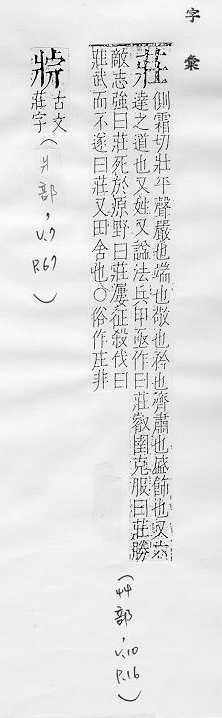 字彙
莊 側霜切壯平聲嚴也端也敬也矜也齊肅也盛飾也又六
達之道也又姓又謚法兵甲亟作曰莊叡圉克服曰莊勝
敵志強曰莊死於原野曰莊屢征殺伐曰
莊武而不遂曰莊又田舍也○俗作庒非
(艸部,V.10
P.16)
古文
莊字
(爿部,
V.7
P.67)